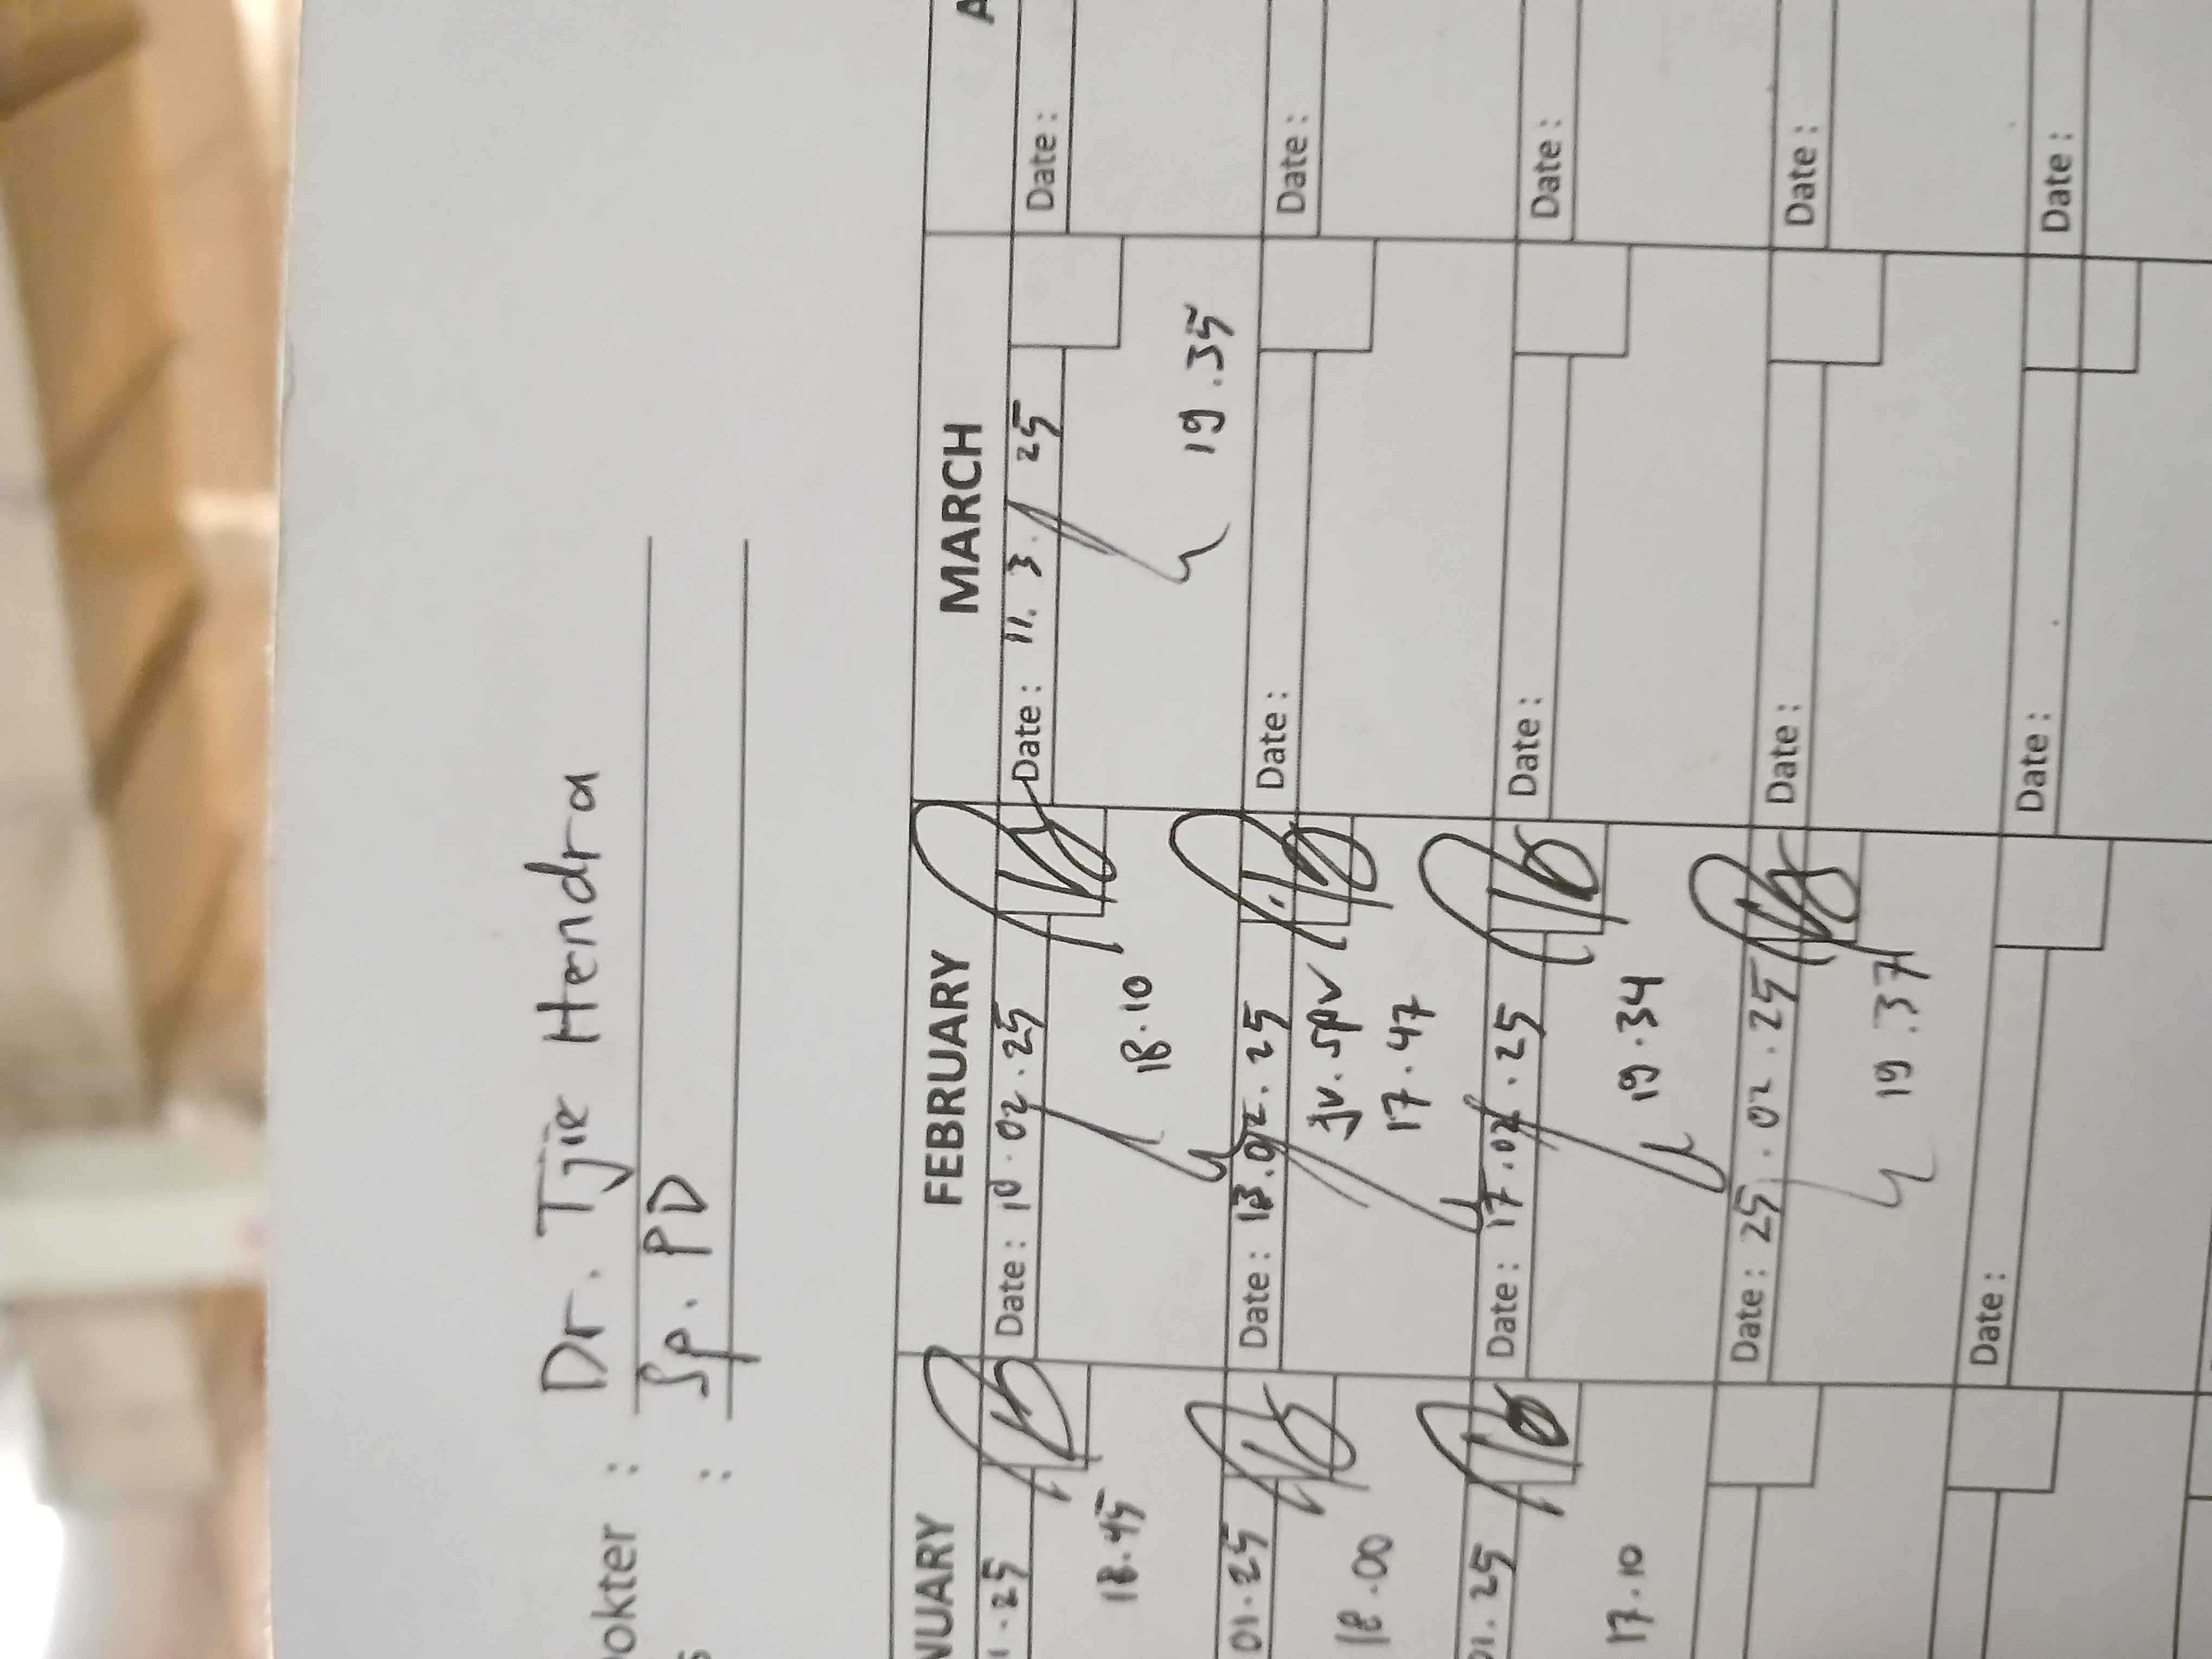 Dokter : Dr. Tjie Hendra
: Sp. PD
NUARY FEBRUARY MARCH A
1.25 Date : 10.02.25 Date : 11.3.25 Date :
18.45 18.10 19.35
01.25 Date : 13.02.25 Date : Date :
18.00 jv. spv
17.47
01.25 Date : 17.02.25 Date : Date :
17.10 19.34
Date : 25.02.25 Date : Date :
19.37
Date : Date : Date :